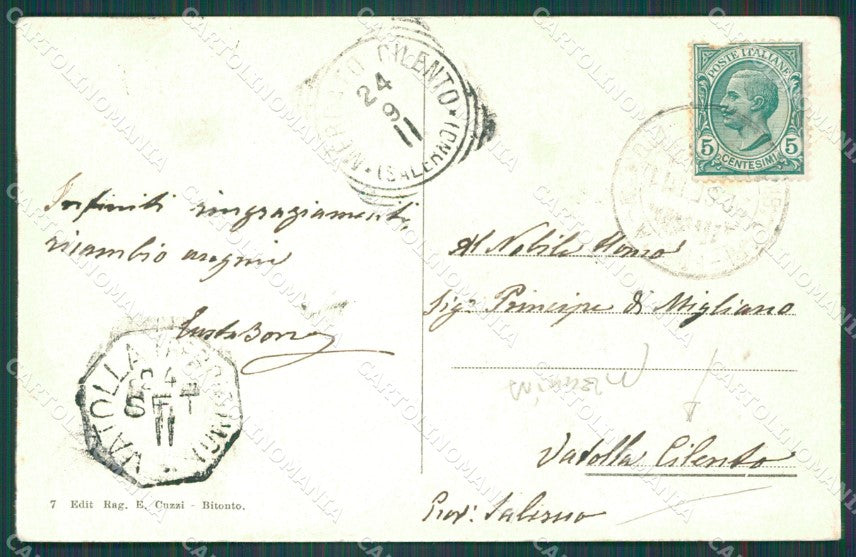 CILENTO
24
9
11
(SALERNO)
POSTE ITALIANE
5 CENTESIMI 5
Infiniti ringraziamenti,
ricambio auguri
Al Nobile Uomo
Sig. Principe di Migliano
Vatolla Cilento
Prov. Salerno
VATOLLA
24
SET
11
7 Edit Rag. E. Cuzzi - Bitonto.
CARTOLINOMANIA